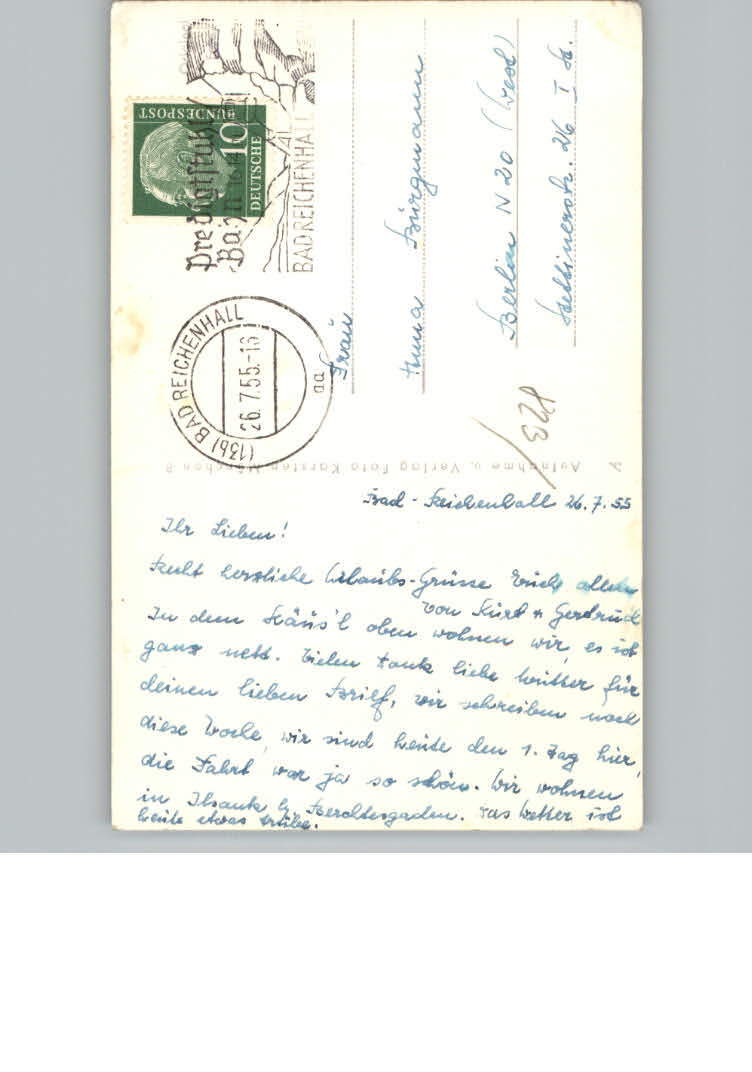 Bad-Reichenhall 26.7.55
Ihr Lieben!
Recht herzliche Urlaubs-Grüsse Euch allen
von Kurt u Gertrud
In dem Häus'l oben wohnen wir, es ist
ganz nett. Vielen Dank liebe Mutter für
deinen lieben Brief, wir schreiben noch
diese Woche, wir sind heute den 1. Tag hier,
die Fahrt war ja so schön. Wir wohnen
in Ilsank b. Berchtesgaden. Das Wetter ist
heute etwas trübe.
Frau
Anna Bürgmann
Berlin N 20 (West)
Stettinerstr. 26 I St.
DEUTSCHE
BUNDESPOST
10
Predigtstuhl
Bahn
BAD REICHENHALL
(13b) BAD REICHENHALL
26.7.55-16
aa
Aufnahme u. Verlag Foto Karsten München 8